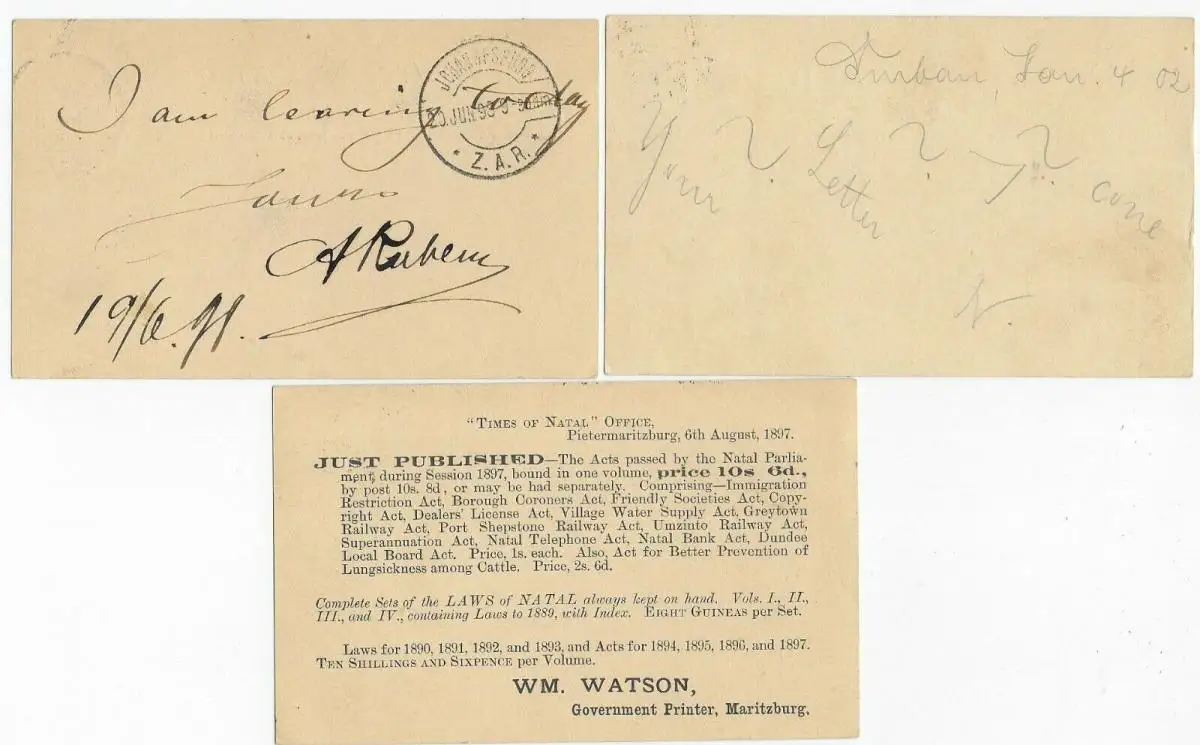 I am leaving to day
Yours
A Rubens
19/6.98.
JOHANNESBURG
20 JUN 98
* Z.A.R. *
Durban, Jan. 4 02
Your ? Letter ? ? come
N.
"TIMES OF NATAL" OFFICE,
Pietermaritzburg, 6th August, 1897.
JUST PUBLISHED—The Acts passed by the Natal Parlia-
ment, during Session 1897, bound in one volume, price 10s 6d.,
by post 10s. 8d, or may be had separately. Comprising—Immigration
Restriction Act, Borough Coroners Act, Friendly Societies Act, Copy-
right Act, Dealers' License Act, Village Water Supply Act, Greytown
Railway Act, Port Shepstone Railway Act, Umzinto Railway Act,
Superannuation Act, Natal Telephone Act, Natal Bank Act, Dundee
Local Board Act. Price, 1s. each. Also, Act for Better Prevention of
Lungsickness among Cattle. Price, 2s. 6d.
Complete Sets of the LAWS of NATAL always kept on hand. Vols. I., II.,
III., and IV., containing Laws to 1889, with Index. EIGHT GUINEAS per Set.
Laws for 1890, 1891, 1892, and 1893, and Acts for 1894, 1895, 1896, and 1897.
TEN SHILLINGS AND SIXPENCE per Volume.
WM. WATSON,
Government Printer, Maritzburg.